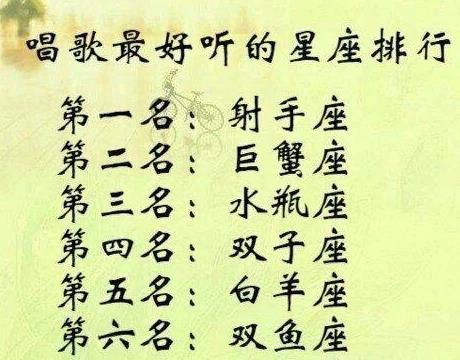 唱歌最好听的星座排行
第一名：射手座
第二名：巨蟹座
第三名：水瓶座
第四名：双子座
第五名：白羊座
第六名：双鱼座